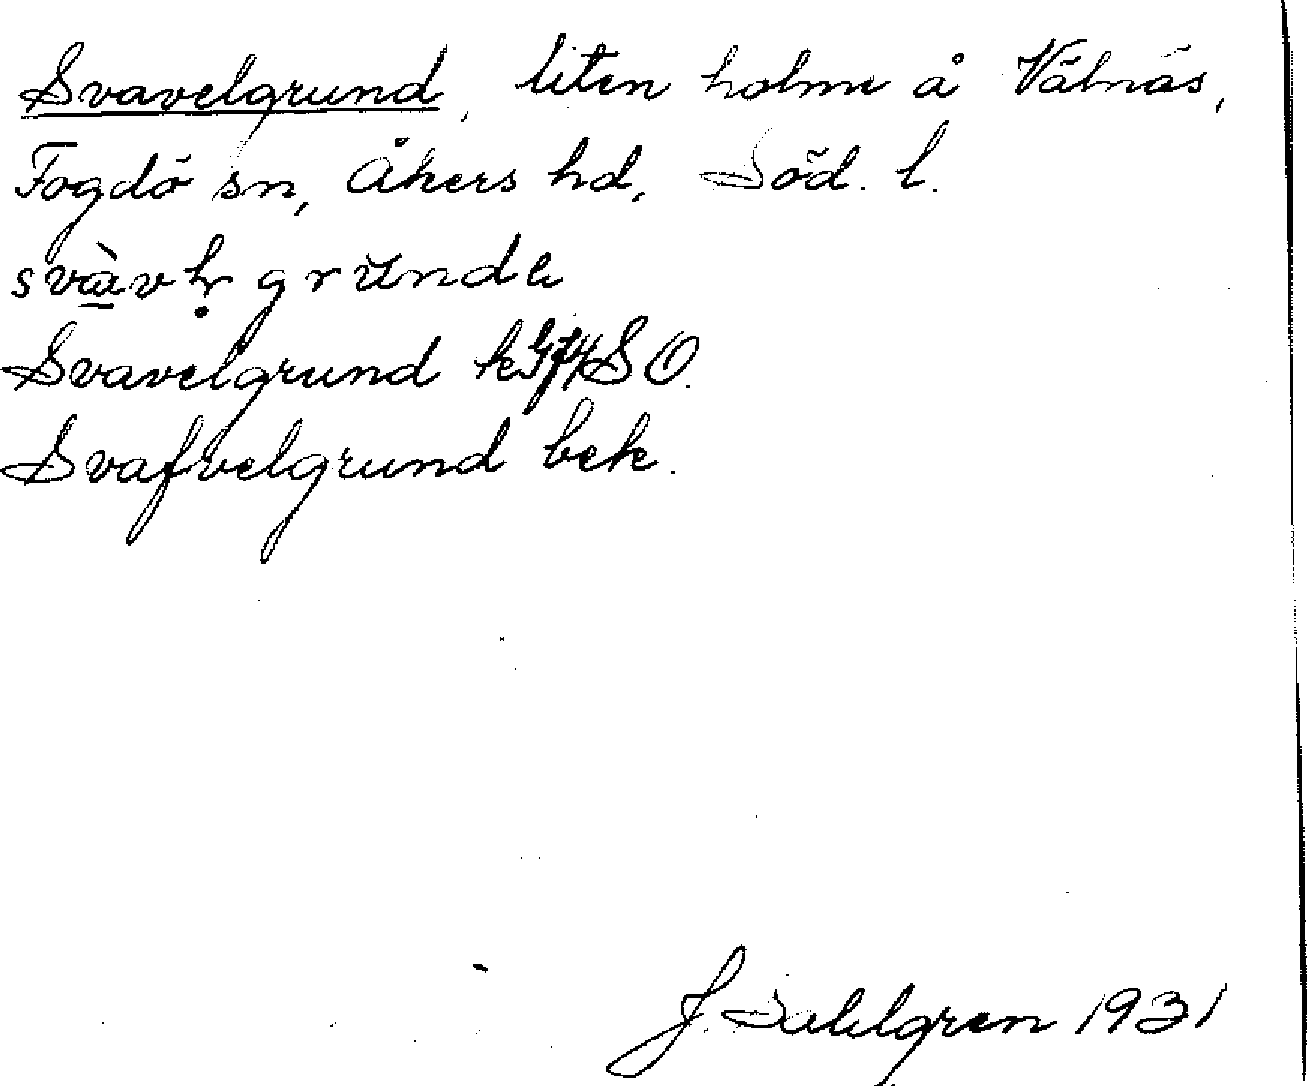 Svavelgrund, liten holme å Välnäs,
Fogdö sn, Åkers hd, Söd. l.
Svavelgrund SO.
Svafvelgrund bek.
J. Sahlgren 1931